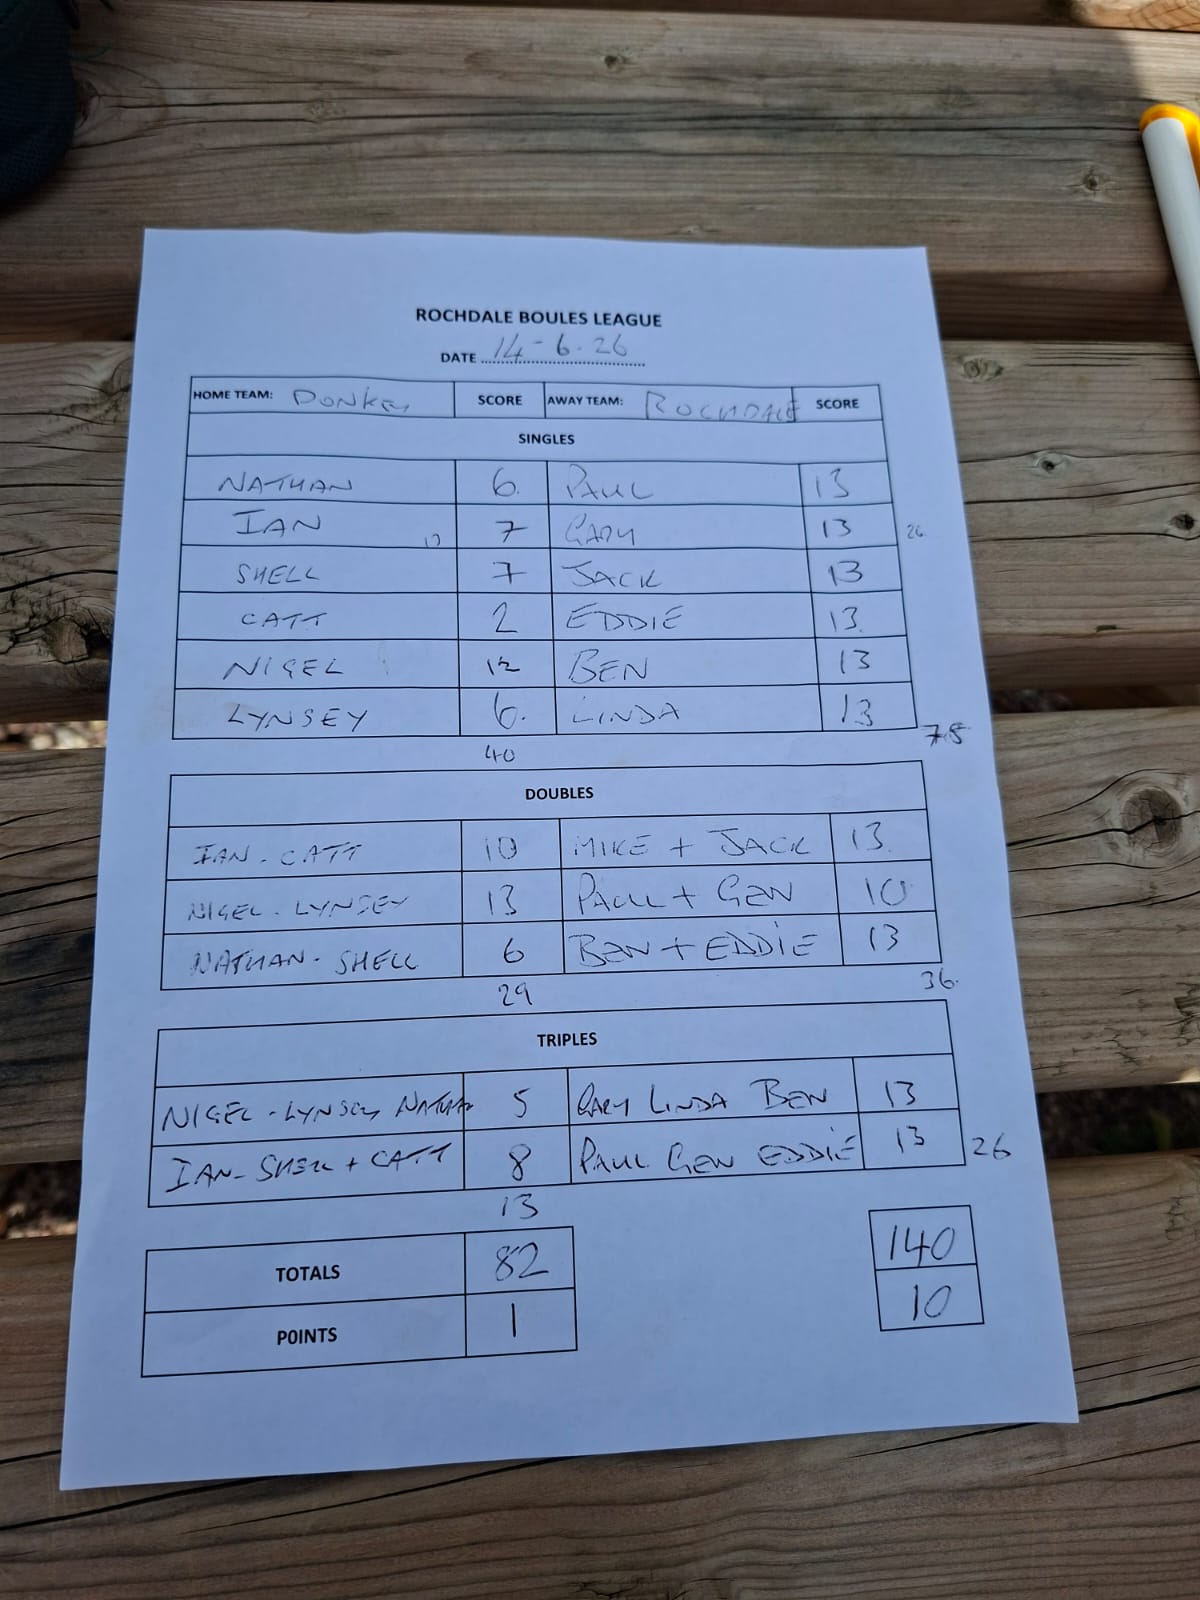 ROCHDALE BOULES LEAGUE
DATE 14-6-26
HOME TEAM: DONKEY SCORE AWAY TEAM: ROCHDALE SCORE
SINGLES
NATHAN 6. PAUL 13
IAN 7 GARY 13 26
SHELL 7 JACK 13
CATT 2 EDDIE 13.
NIGEL 12 BEN 13
LYNSEY 6. LINDA 13
40 78
DOUBLES
IAN - CATT 10 MIKE + JACK 13.
NIGEL - LYNSEY 13 PAUL + GEN 10
NATHAN - SHELL 6 BEN + EDDIE 13
29 36.
TRIPLES
NIGEL - LYNSEY NATHAN 5 GARY LINDA BEN 13
IAN - SHELL + CATT 8 PAUL GEN EDDIE 13 26
13
TOTALS 82 140
POINTS 1 10